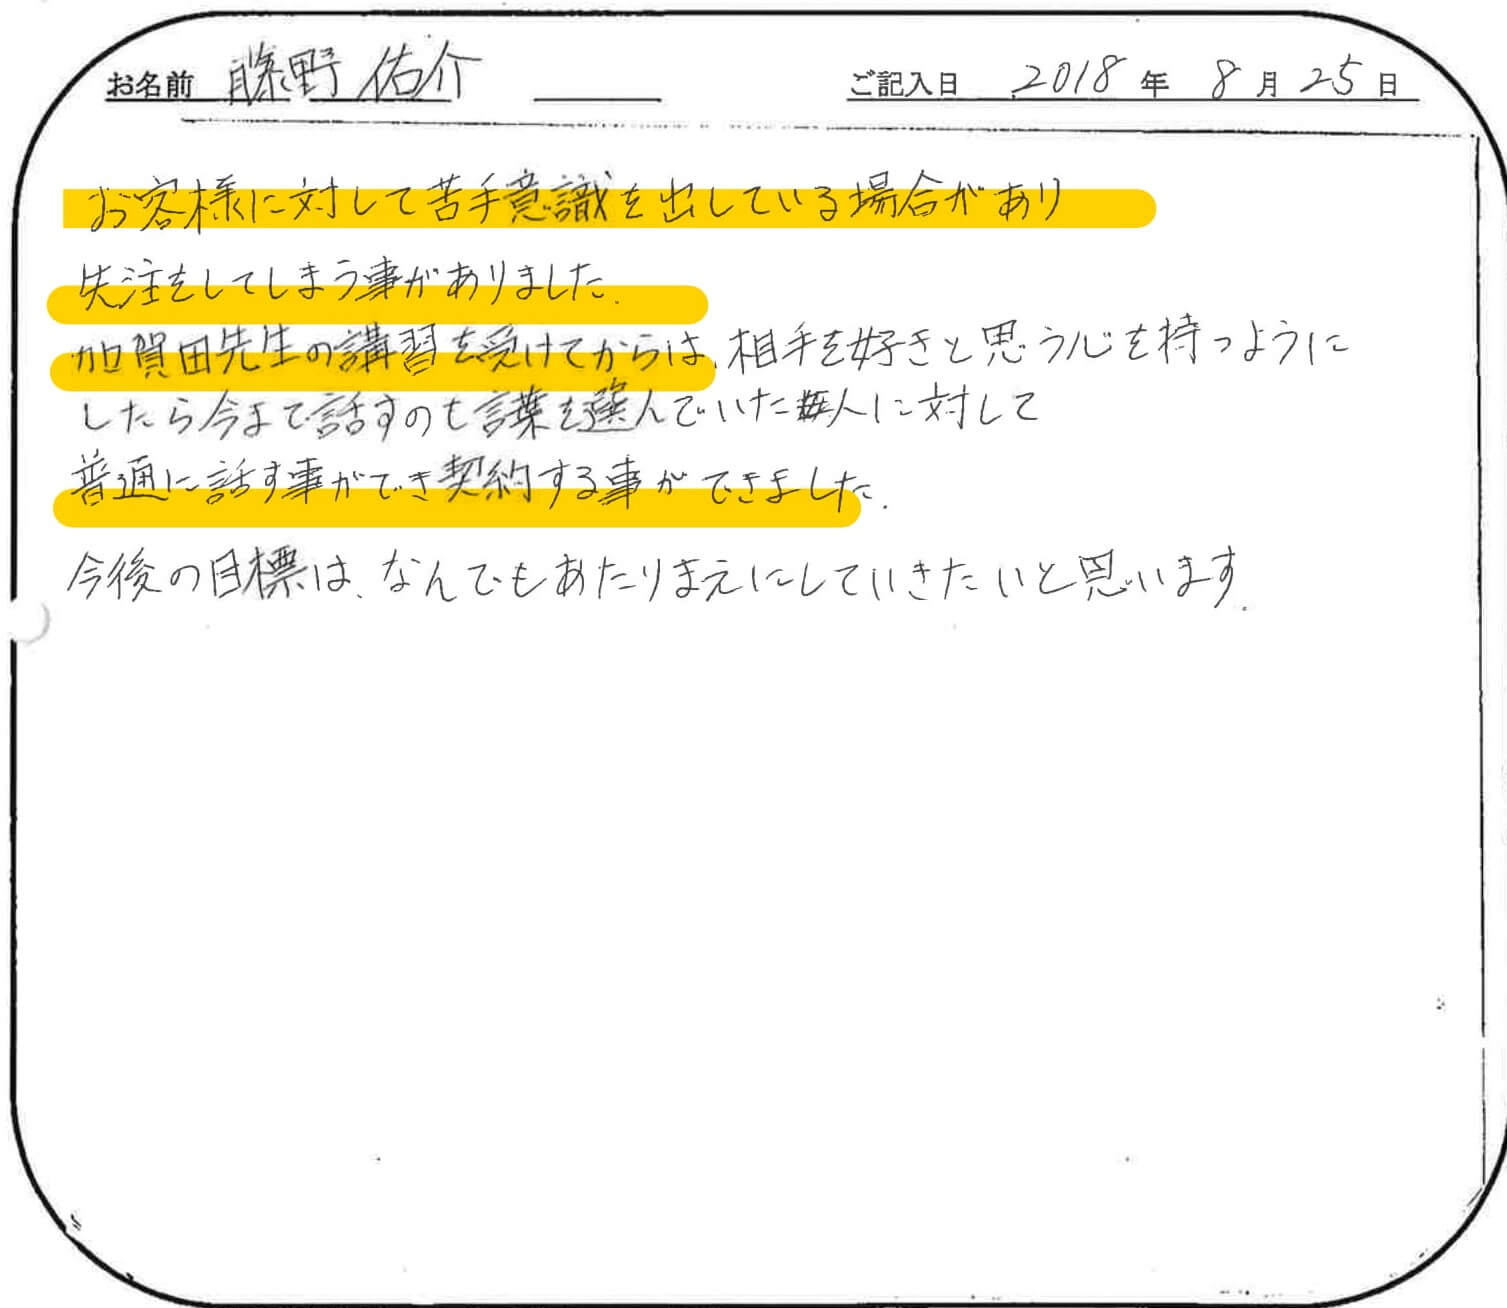 お名前 藤野 佑介 ご記入日 2018年 8月25日
お客様に対して苦手意識を出している場合があり
失注をしてしまう事がありました。
加賀田先生の講習を受けてからは、相手を好きと思う心を持つように
したら今まで話すのも言葉を選んでいた人に対して
普通に話す事ができ契約する事ができました。
今後の目標は、なんでもあたりまえにしていきたいと思います。